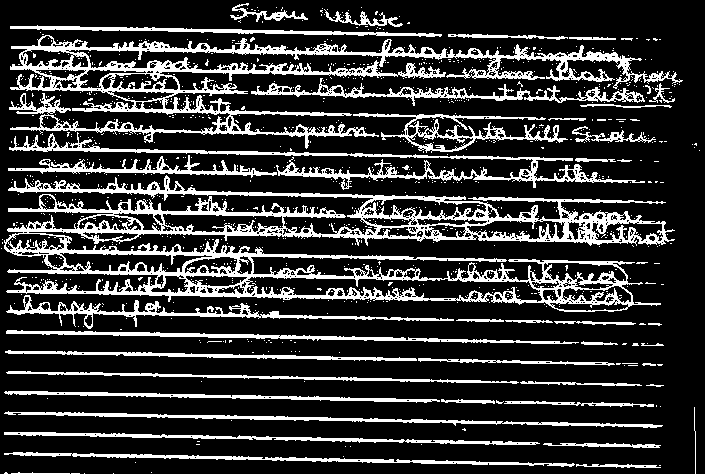 Snow White.
Once upon a time, one faraway kingdom,
lived one god princess and her name was Snow
White lived the one bad queen that didn't
like Snow White.
One day the queen told to kill Snow
White.
Snow Whit run away to house of the
seven dwafs.
One day the queen disguised of beggar
and gave one poisoned apple to Snow White that
went in deep sleep.
One day came one prince that kissed
Snow Whit, the two married and lived
happy for ever.